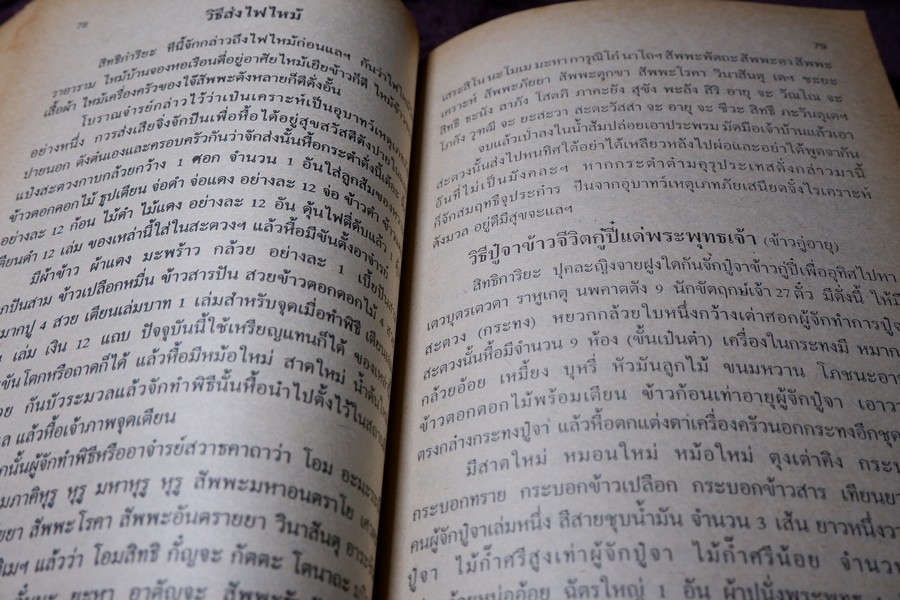 78
วิธีส่งไฟไหม้
สิทธิกำริยะ ทีนี้จักกล่าวถึงไฟไหม้ก่อนแลฯ กันว่าไฟไหม้
วาอาราม ไหม้บ้านจองหอเรือนตี่อยู่อาศัยไหม้เยียข้าวก็ดี ไหม้
เสื้อผ้า ไหม้เครื่องครัวของใจ้สัพพะดังหลายก็ดีดั่งอั้น
โบราณจ๋ารย์กล่าวไว้ว่าเป็นเคราะห์เป็นอุบาทว์เหตุ
อย่างหนึ่ง การส่งเสียจิ่งจักปืนเพื่อหื้อได้อยู่สุขสวัสดีดังปาย
ปายนอก ดังต๋นเองและครอบครัวกันว่าจักส่งนั้นหื้อกระตำดั่งนี้เต๊อะ
แป๋งสะตวงกาบกล้วยกว้าง 1 ศอก จำนวน 1 อันใส่ลูกส้มของหวาน
ข้าวตอกดอกไม้ ธูปเตียน จ่อดำ จ่อแดง อย่างละ 12 จ่อ ข้าวดำ
อย่างละ 12 ก้อน ไม้ดำ ไม้แดง อย่างละ 12 อัน ดุ้นไฟตี่ดับแล้ว 1
เตียนดำ 12 เล่ม ของเหล่านี้ใส่ในสะตวงฯ แล้วหื้อมีขันตั้งอาจ๋ารย์
มีผ้าข้าว ผ้าแดง มะพร้าว กล้วย อย่างละ 1 เบี้ยปันสาม
ปันสาม ข้าวเปลือกหมื่น ข้าวสารปัน สวยข้าวตอกดอกไม้ 4
หมากปู 4 สวย เตียนเล่มบาท 1 เล่มสำหรับจุดเมื่อทำพิธี เตียน
เล่ม เงิน 12 แถบ ปัจจุบันนี้ใช้เหรียญแทนก็ได้ ของ
ขันโตกหรือถาดก็ได้ แล้วหื้อมีหม้อใหม่ สาดใหม่ น้ำต้น
กันบัวระมวลแล้วจักทำพิธีนั้นหื้อนำไปตั้งไว้ใน
แล้วหื้อเจ้าภาพจุดเตียน
นั้นผู้จักทำพิธีหรืออาจ๋ารย์สวาธคาถาว่า โอม
หุรู หุรู มหาหุรู หุรู สัพพะมหาอนตราโย
สัพพะโรคา สัพพะอันตรายยา วินาสันตุ
แล้วว่า โอมสิทธิ กั๋ญจะ กัตตะ โตนาถะ
ยะหา อาคัญจะ สัพพะ
79
เสระสิโน นะโมเม มะหาการุณิโก๋ นาโถฯ สัพพะพัตถะ สัพพะตา สัพพะ
เคราะห์ สัพพะภัยยา สัพพะตุกขา สัพพะโรคา วินาสันตุ เตฯ ชะยะ
สิทธิ ธะนัง ลาภัง โสตถิ ภาคะยัง สุขัง พะลัง สิริ อายุ จะ วัณโณ จะ
โภคัง วุฑฒี จะ ยะสะวา สะตะวัสสา จะ อายุ จะ ชีวะ สิทธี ภะวันตุเตฯ
จบแล้วเป่าลงในน้ำส้มป่อยเอาประพรม มัดมือเจ้าบ้านแล้วเอา
สะตวงนั้นส่งไปหนทิศใต้อย่าได้เหลียวหลังไปผ่อและอย่าได้พูดจากัน
อันที่ไม่เป็นมังคละฯ หากกระตำตามคุรุประเทสดั่งกล่าวมานี้
ก็จักสมฤทธีจุประก๋าร ปืนจากอุบาทว์เหตุเภทภัยเสนียดจั๋งไรเคราะห์
ดังมวล อยู่ดีมีสุขจะแลฯ
วิธีปู่จาข้าวจีวิตกู้ปี๋แด่พระพุทธเจ้า (ข้าวกู่อายุ)
สิทธิการิยะ ปุคละญิงจายฝูงใดกันจักปู่จาข้าวกู้ปี๋เพื่ออุทิศไปหา
เตวบุตรเตวดา ราหูเกตุ นพคาดดัง 9 นักขัตฤกษ์เจ้า 27 ตั๋ว มีดั่งนี้ ให้มี
สะตวง (กระทง) หยวกกล้วยใบหนึ่งกว้างเต่าศอกผู้จักทำการปู่จา
สะตวงนั้นหื้อมีจำนวน 9 ห้อง (ขั้นเป็นต๋า) เครื่องในกระทงมี หมาก
กล้วยอ้อย เหมี้ยง บุหรี่ หัวมันลูกไม้ ขนมหวาน โภชนะอา
ข้าวตอกดอกไม้พร้อมเตียน ข้าวก้อนเท่าอายุผู้จักปู่จา เอาวา
ตรงกล๋างกระทงปู่จา แล้วหื้อตกแต่งตาเครื่องครัวนอกกระทงอีกชุด
มีสาดใหม่ หมอนใหม่ หม้อใหม่ ตุงเต่าคิง กระบ
กระบอกทราย กระบอกข้าวเปลือก กระบอกข้าวสาร เทียนยา
คนผู้จักปู่จาเล่มหนึ่ง สีสายชุบน้ำมัน จำนวน 3 เส้น ยาวหนึ่งวา
ปู่จา ไม้ก๊ำศรีสูงเท่าผู้จักปู่จา ไม้ก๊ำศรีน้อย จำนวน
หน่ออ้อย ฉัตรใหญ่ 1 อัน ผ้าปูนั่งพระพุทธะ